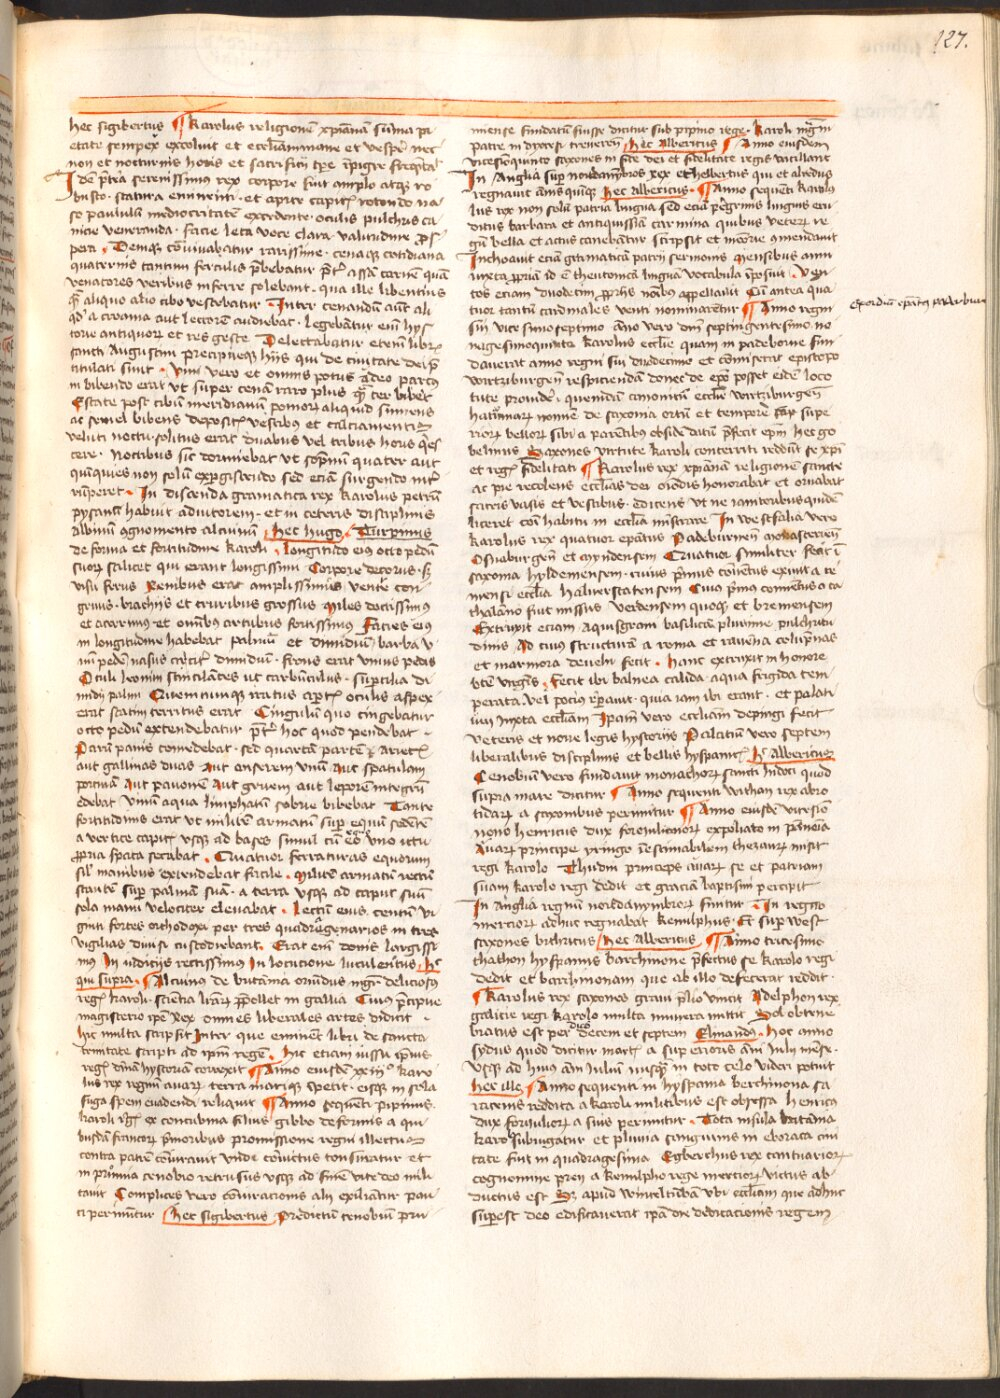 127.
hec sigibertus ¶ Karolus religionē xpianā sūma pi
etate semper excoluit et eccliam mane et vespe nec
non et nocturnis horis et sacrificij tpe īpigre frequētabat
Idē pterea serenissimus rex corpore fuit amplo atqz ro
busto · statura eminenti · et apice capitis rotondo na
so paululum mediocritatē excedente · oculis pulchris ca
nicie veneranda · facie leta voce clara valitudine pros
pera · Deniqz cōuivabatur rarissime · cenaqz cotidiana
quaternis tantum ferculis pbebatur pter assā carnē quā
venatores veribus inferre solebant · qua ille libentius
qz aliquo alio cibo vescebatur Inter cenandū aut ali
qd a croama aut lectorē audiebat · legebātur eim hys
torie antiquorū et res geste Delectabatur etiam libris
sancti Augustini precipueqz hijs qui de ciuitate dei p
titulati sunt · Vini vero et omnis potus adeo parcus
in bibendo erat vt super cenā raro plus qz ter biberet
Estate post cibū meridianū pomorū aliquid sumens
ac semel bibens depositis vestibus et calciamentis
veluti noctu solitus erat duabus vel tribus horis qes
cere · Noctibus sic dormiebat vt sopnū quater aut
quīquies non solū expgiscendo sed etiā surgendo inter
rūperet · In discenda gramatica rex Karolus petrū
pysanū habuit adiutorem · et in ceteris disciplinis
albinū agnomento alcuinū hec hugo Turpinus
de forma et fortitudine Karoli · longitudo eius octo pedū
suorū scilicet qui erant longissimi Corpore decorus · sz
visu ferus Renibus erat amplissimus ventre con
gruus · brachijs et cruribus grossus miles doctissimus
et acerrimus et omnibus artubus fortissimus Facies eius
in longitudine habebat palmū et dimidiū barba v
nū pedē nasus circiter dimidiū · frons erat vnius pedis
Oculi leonini scintilātes ut carbūculus · supcilia di
midij palmi Quemcunqz iratus aptis oculis aspex
erat statim territus erat Cingulū quo cingebatur
octo pedū extendebatur pter hoc quod pendebat
Parū panis comedebat · sed quartā partē arietis
aut gallinas duas aut anserem vnū aut spatulam
porcinā aut pauonē aut gruem aut leporē integrū
edebat vinū aqua limphatū sobrie bibebat Tante
fortitudinis erat ut militē armatū super equū sedētē
a vertice capitis vsqz ad bases simul cū eo vno ictu
propria spata secabat · Quatuor ferraturas equorum
sil manibus extendebat facile · militē armatū rectū
stantē super palmā suā · a terra vsqz ad caput suū
sola manu velociter eleuabat · Lectū eius centū vi
ginti fortes orthodoxi per tres quadragenarios in tres
vigilias diuisi custodiebant · Erat em donis largissi
mus In iudicijs rectissimus In locutione luculentus hec
qui supra · ¶ Alcuinus de britania oriūdus mgr deliciosus
regis karoli · scientia litarū ppollet in gallia Cuius pcipue
magisterio ipe Rex omnes liberales artes didicit
hic multa scripsit Inter que eminēt libri de sancta
trinitate scripti ad ipm regē · hic etiam iussu ipius
regis diuinā hystoriā correxit ¶ Anno eiusdē xxiiij karo
lus rex regnū auarū terra mariqz petit · eisqz in sola
fuga spem euadendi reliquit ¶ Anno sequēti pipinus
karoli regis ex concubina filius gibbo deformis a qui
busdā francorū primoribus promissione regni illectus
contra patrē cōiurauit vnde conuictus tonsuratur et
in prumia cenobio retrusus vsqz ad finē vite deo mili
tauit Complices vero cōiuracionis alij exiliātur pau
ci perimūtur hec sigibertus Predictū cenobiū pru
miense fundatū fuisse dicitur sub pipino rege · karoli magni
patre in dyoces treuerēn hec Albericus ¶ Anno eiusdem
vicesimoquinto saxones in fide dei et fidelitate regis vacillant
In Anglia super nordanhimbros xxx ethelbertus qui et aluedus
regnauit annis quīqz hec albericus · ¶ Anno sequēti karo
lus rex non solū patria lingua sed etiā peregrinis linguis eru
ditus barbara et antiquissima carmina quibus veterū re
gū bella et actus canebātur scripsit et memorie cōmendauit
Inchoauit etiā gramaticā patrij sermonis mensibus anni
iuxta propriā id ē theutonicā linguā vocabula īposuit · Ven
tos etiam duodecim proprijs nomībus appellauit Cū antea qua
tuor tantū cardinales venti nominarētur ¶ Anno regni
sui vicesimoseptimo āno vero dni septingentesimo no
nagesimoquinto Karolus eccliā quam in padeborne fun
dauerat anno regni sui duodecimo et cōmiserat episcopo
wirtzburgen respiciendā donec de epo posset eidē loco
tute prouidē · quendā canonicū ecclie wirtzburgen
hatumarū nomine de saxonia ortū et tempore supe
riorū bellorū sibi a parētibus obside datū prefecit epm hec go
belinus Saxones virtute karoli conterriti reddūt se xpi
et regis fidelitati ¶ Karolus rex xpianā religionē sancte
ac pie recolens ecclīas dei modis honorabat et ornabat
sacris vasis et vestibus · edicens vt ne ianitoribus quidē
liceret coīi habitu in ecclīa ministrare In westfalia vero
karolus rex quatuor epātus Padeburnēn monasterien
Osnaburgen et myndensem Quatuor similiter fecit ī
saxonia hyldemensem · cuius primus cōuētus exiuit a re
mensi ecclīa halverstatensem Cuius primus cōuentus a ca
thalano fuit missus verdensem quoqz et bremensem
Extruxit etiam Aquisgrani basilicā plurime pulcritu
dinis Ad cuius structurā a roma et rauēna colūpnas
et marmora deuehi fecit · hanc extruxit in honore
bte virginis · Fecit ibi balnea calida · aqua frigida tem
perata vel pocius reparauit · quia iam ibi erant · et palati
um iuxta eccliam Ipam vero eccliam depingi fecit
veteris et noue legis hystorijs Palacium vero septem
liberalibus disciplinis et bellis hyspanicis hec Albericus
Cenobiū vero fundauit monachorū sancti Judoci quod
supra mare dicitur ¶ Anno sequenti withan rex abro
titarū a saxonibus perimitur ¶ Anno eiusdē vicesimo
nono henricus dux foroiulianorū expoliato in pānonia
auarū principe yringo inestimabilem thezaurū misit
regi karolo Thudin princeps auarū se et patriam
suam karolo regi dedit et graciā baptismi percipit
In Anglia regnū nordanymbrorū finitur In regno
merciorū adhuc regnabat kenulphus · Et super west
saxones bithricus hec Albericus ¶ Anno tricesimo
thathon hyspanus barchinone pfectus se karolo regi
dedit et barchinonam que ab illo defecerat reddit ·
¶ Karolus rex saxones graui plio vincit Adelphon rex
galicie regi karolo multa munera mittit Sol obtene
bratus est per dies decem et septem Elinandus · hoc anno
sydus quod dicitur martis a superioris ani iulij mense ·
vsqz ad huius ani Iuliū nusqz in toto celo videri potuit
hec ille ¶ Anno sequenti in hyspania berchinona sa
racenis reddita a karoli militibus est obsessa henricus
dux foroiuliorū a suis perimitur · Tota insula britānia
karolo subiugatur et pluuia sanguinis in eboraca ciui
tate fuit in quadragesima Egberchus rex cantuariorū
cognomine pren a kenulpho rege merciorū victus ab
ductus est Sz apud winceltūbā vbi eccliam que adhuc
superest deo edificauerat ipā die dedicacionis regem
Exordiū epatus padeburn